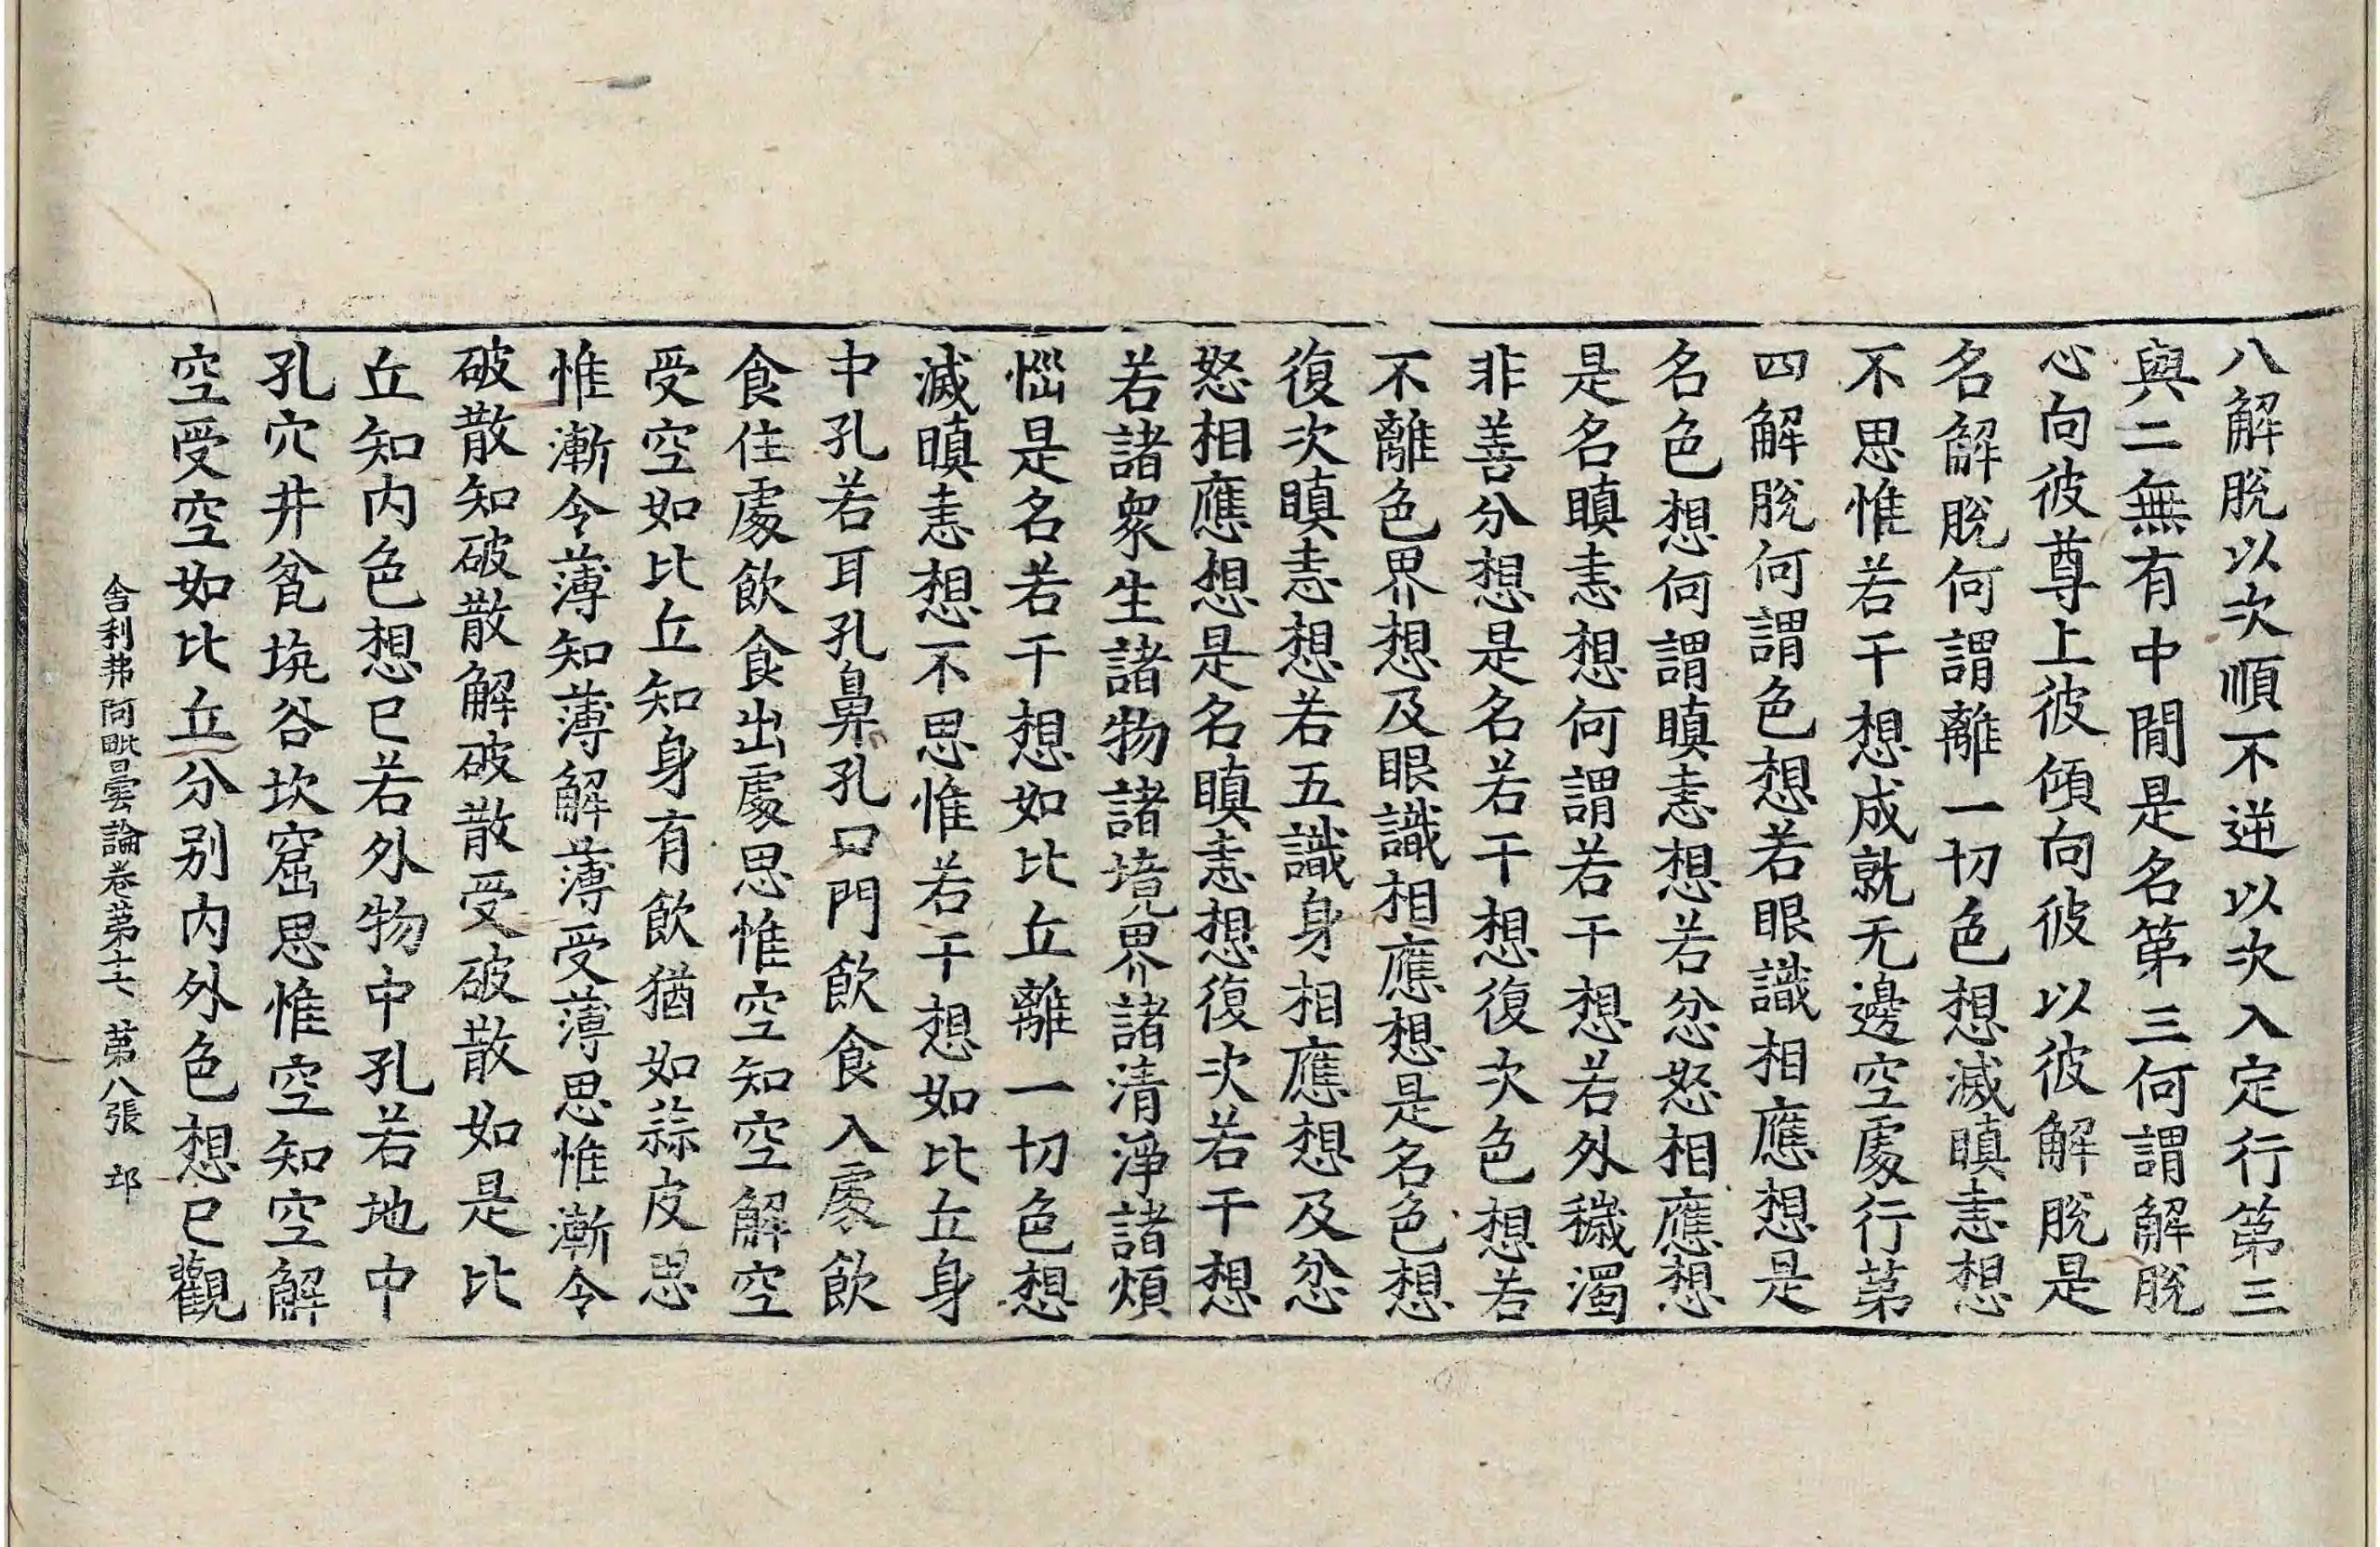 八解脫以次順不逆以次入定行第三
與二無有中閒是名第三何謂解脫
心向彼尊上彼傾向彼以彼解脫是
名解脫何謂離一切色想滅瞋恚想
不思惟若干想成就无邊空處行第
四解脫何謂色想若眼識相應想是
名色想何謂瞋恚想若忿怒相應想
是名瞋恚想何謂若干想若外穢濁
非善分想是名若干想復次色想若
不離色界想及眼識相應想是名色想
復次瞋恚想若五識身相應想及忿
怒相應想是名瞋恚想復次若干想
若諸衆生諸物諸境界諸清淨諸煩
惱是名若干想如比丘離一切色想
滅瞋恚想不思惟若干想如比丘身
中孔若耳孔鼻孔口門飲食入處飲
食住處飲食出處思惟空知空解空
受空如比丘知身有飲猶如蒜皮思
惟漸令薄知薄解薄受薄思惟漸令
破散知破散解破散受破散如是比
丘知內色想已若外物中孔若地中
孔穴井瓮坑谷坎窟思惟空知空解
空受空如比丘分別內外色想已觀
舍利弗阿毗曇論卷第十七 第八張 邙